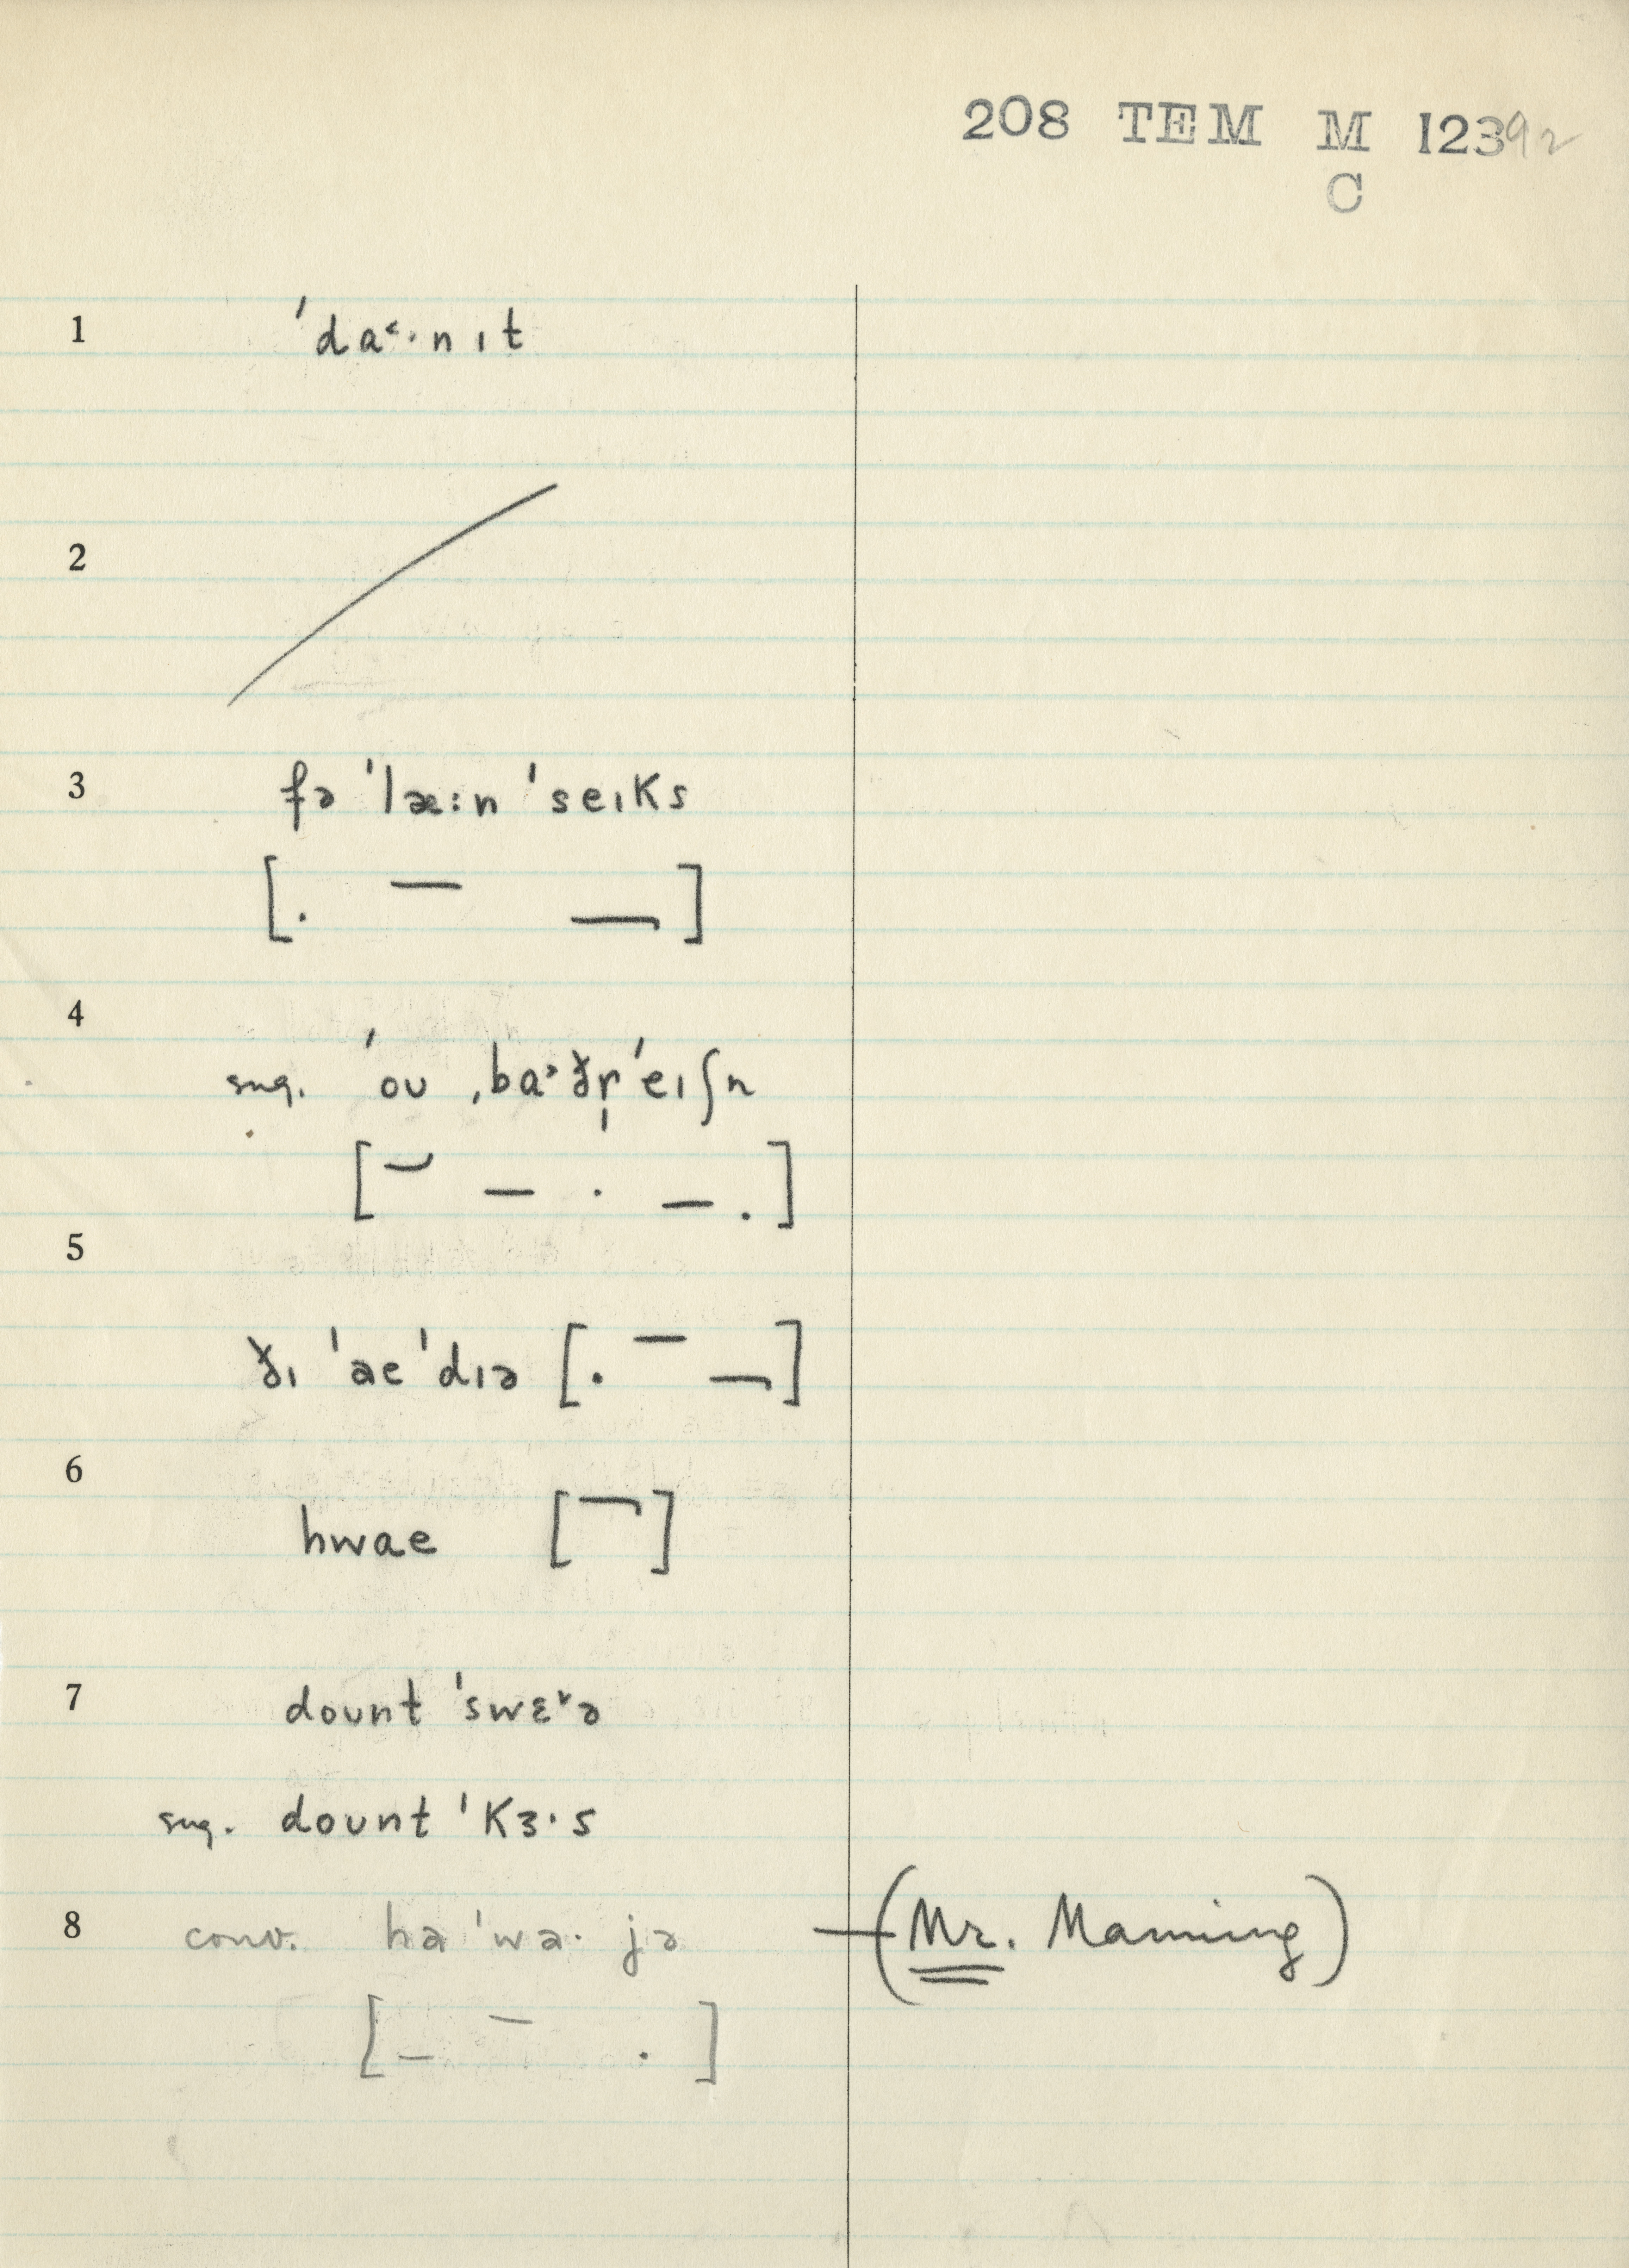 208 TEM M 12392
C
1 'da˂·nɪt
2
3 fə 'læ:n 'seɪks
[. – –]
4
sug. 'oʊ ˌba˃ðr̩'eɪʃn
[– – · – .]
5
ðɪ 'ae'dɪə [. – –]
6
hwae [–]
7 doʊnt 'swɛ˅ə
sug. doʊnt 'kɜ·s
8 conv. ha 'wa· jə —(Mr. Manning)
[– – .]